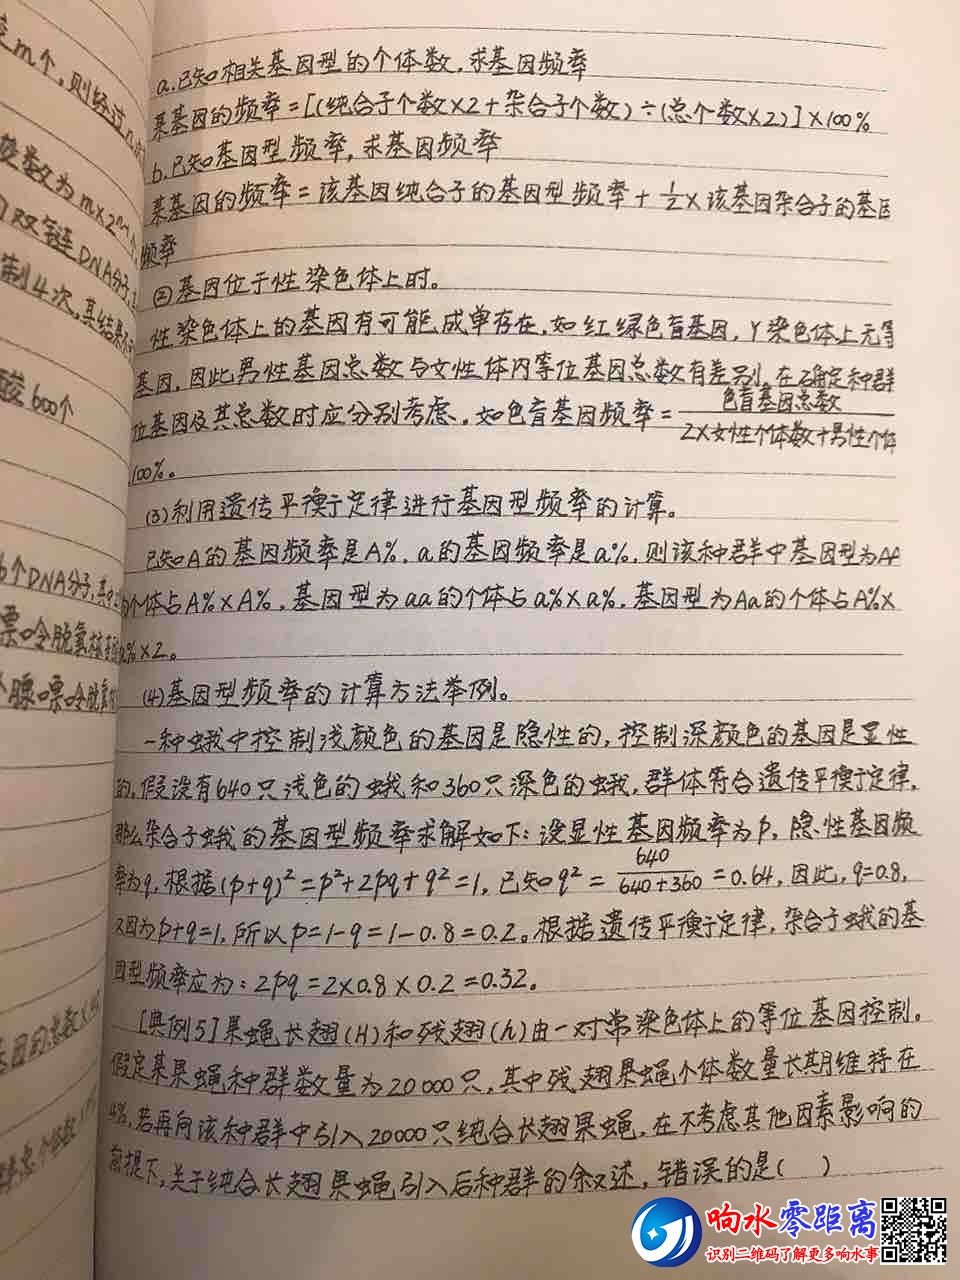 a.已知相关基因型的个体数,求基因频率
某基因的频率=[(纯合子个数×2+杂合子个数)÷(总个数×2)]×100%
b.已知基因型频率,求基因频率
某基因的频率=该基因纯合子的基因型频率+1/2×该基因杂合子的基因
频率
②基因位于性染色体上时。
性染色体上的基因有可能成单存在,如红绿色盲基因,Y染色体上无等
基因,因此男性基因总数与女性体内等位基因总数有差别,在确定种群
位基因及其总数时应分别考虑。如色盲基因频率=色盲基因总数/2×女性个体数+男性个体
100%。
(3)利用遗传平衡定律进行基因型频率的计算。
已知A的基因频率是A%,a的基因频率是a%,则该种群中基因型为AA
的个体占A%×A%,基因型为aa的个体占a%×a%,基因型为Aa的个体占A%×
a%×2。
(4)基因型频率的计算方法举例。
一种蛾中控制浅颜色的基因是隐性的,控制深颜色的基因是显性
的,假设有640只浅色的蛾和360只深色的蛾,群体符合遗传平衡定律,
那么杂合子蛾的基因型频率求解如下:设显性基因频率为p,隐性基因频
率为q,根据(p+q)²=p²+2pq+q²=1,已知q²=640/640+360=0.64,因此,q=0.8,
又因为p+q=1,所以p=1-q=1-0.8=0.2。根据遗传平衡定律,杂合子蛾的基
因型频率应为:2pq=2×0.8×0.2=0.32。
[典例5]果蝇长翅(H)和残翅(h)由一对常染色体上的等位基因控制。
假定某果蝇种群数量为20000只,其中残翅果蝇个体数量长期维持在
4%,若再向该种群中引入20000只纯合长翅果蝇,在不考虑其他因素影响的
前提下,关于纯合长翅果蝇引入后种群的叙述,错误的是( )
m个,则经过n
数为m×2ⁿ⁻¹个
双链DNA分子,
制4次,其结果
酸600个
个DNA分子,其中
嘌呤脱氧核
个腺嘌呤脱氧
响水零距离
识别二维码了解更多响水事